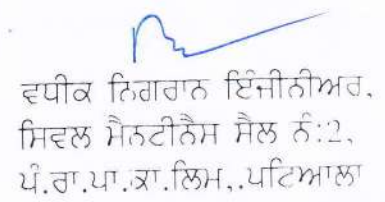 ਵਧੀਕ ਨਿਗਰਾਨ ਇੰਜੀਨੀਅਰ,
ਸਿਵਲ ਮੈਨਟੀਨੈਸ ਸੈਲ ਨੰ:2,
ਪੰ.ਰਾ.ਪਾ.ਕਾ.ਲਿਮ,.ਪਟਿਆਲਾ